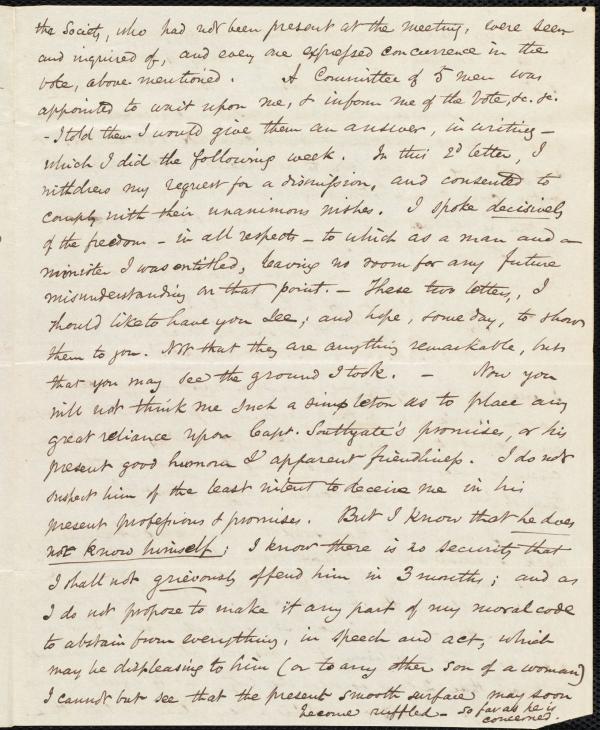 the Society, who had not been present at the meeting, were seen
and inquired of, and every one expressed concurrence in the
vote, above mentioned. A Committee of 5 men was
appointed to wait upon me, & inform me of the vote, &c. &c.
- I told them I would give them an answer, in writing -
which I did the following week. In this 2d letter, I
withdrew my request for a dismission, and consented to
comply with their unanimous wishes. I spoke decisively
of the freedom - in all respects - to which as a man and a
minister I was entitled, leaving no room for any future
misunderstanding on that point. - These two letters, I
should like to have you see; and hope, some day, to show
them to you. Not that they are anything remarkable, but
that you may see the ground I took. - Now you
will not think me such a simpleton as to place any
great reliance upon Capt. Southgate's promises, or his
present good humour & apparent friendliness. I do not
suspect him of the least intent to deceive me in his
present professions & promises. But I know that he does
not know himself; I know there is no security that
I shall not grievously offend him in 3 months; and as
I do not propose to make it any part of my moral code
to abstain from everything, in speech and act, which
may be displeasing to him (or to any other son of a woman)
I cannot but see that the present smooth surface may soon
become ruffled - so far as he is
concerned.